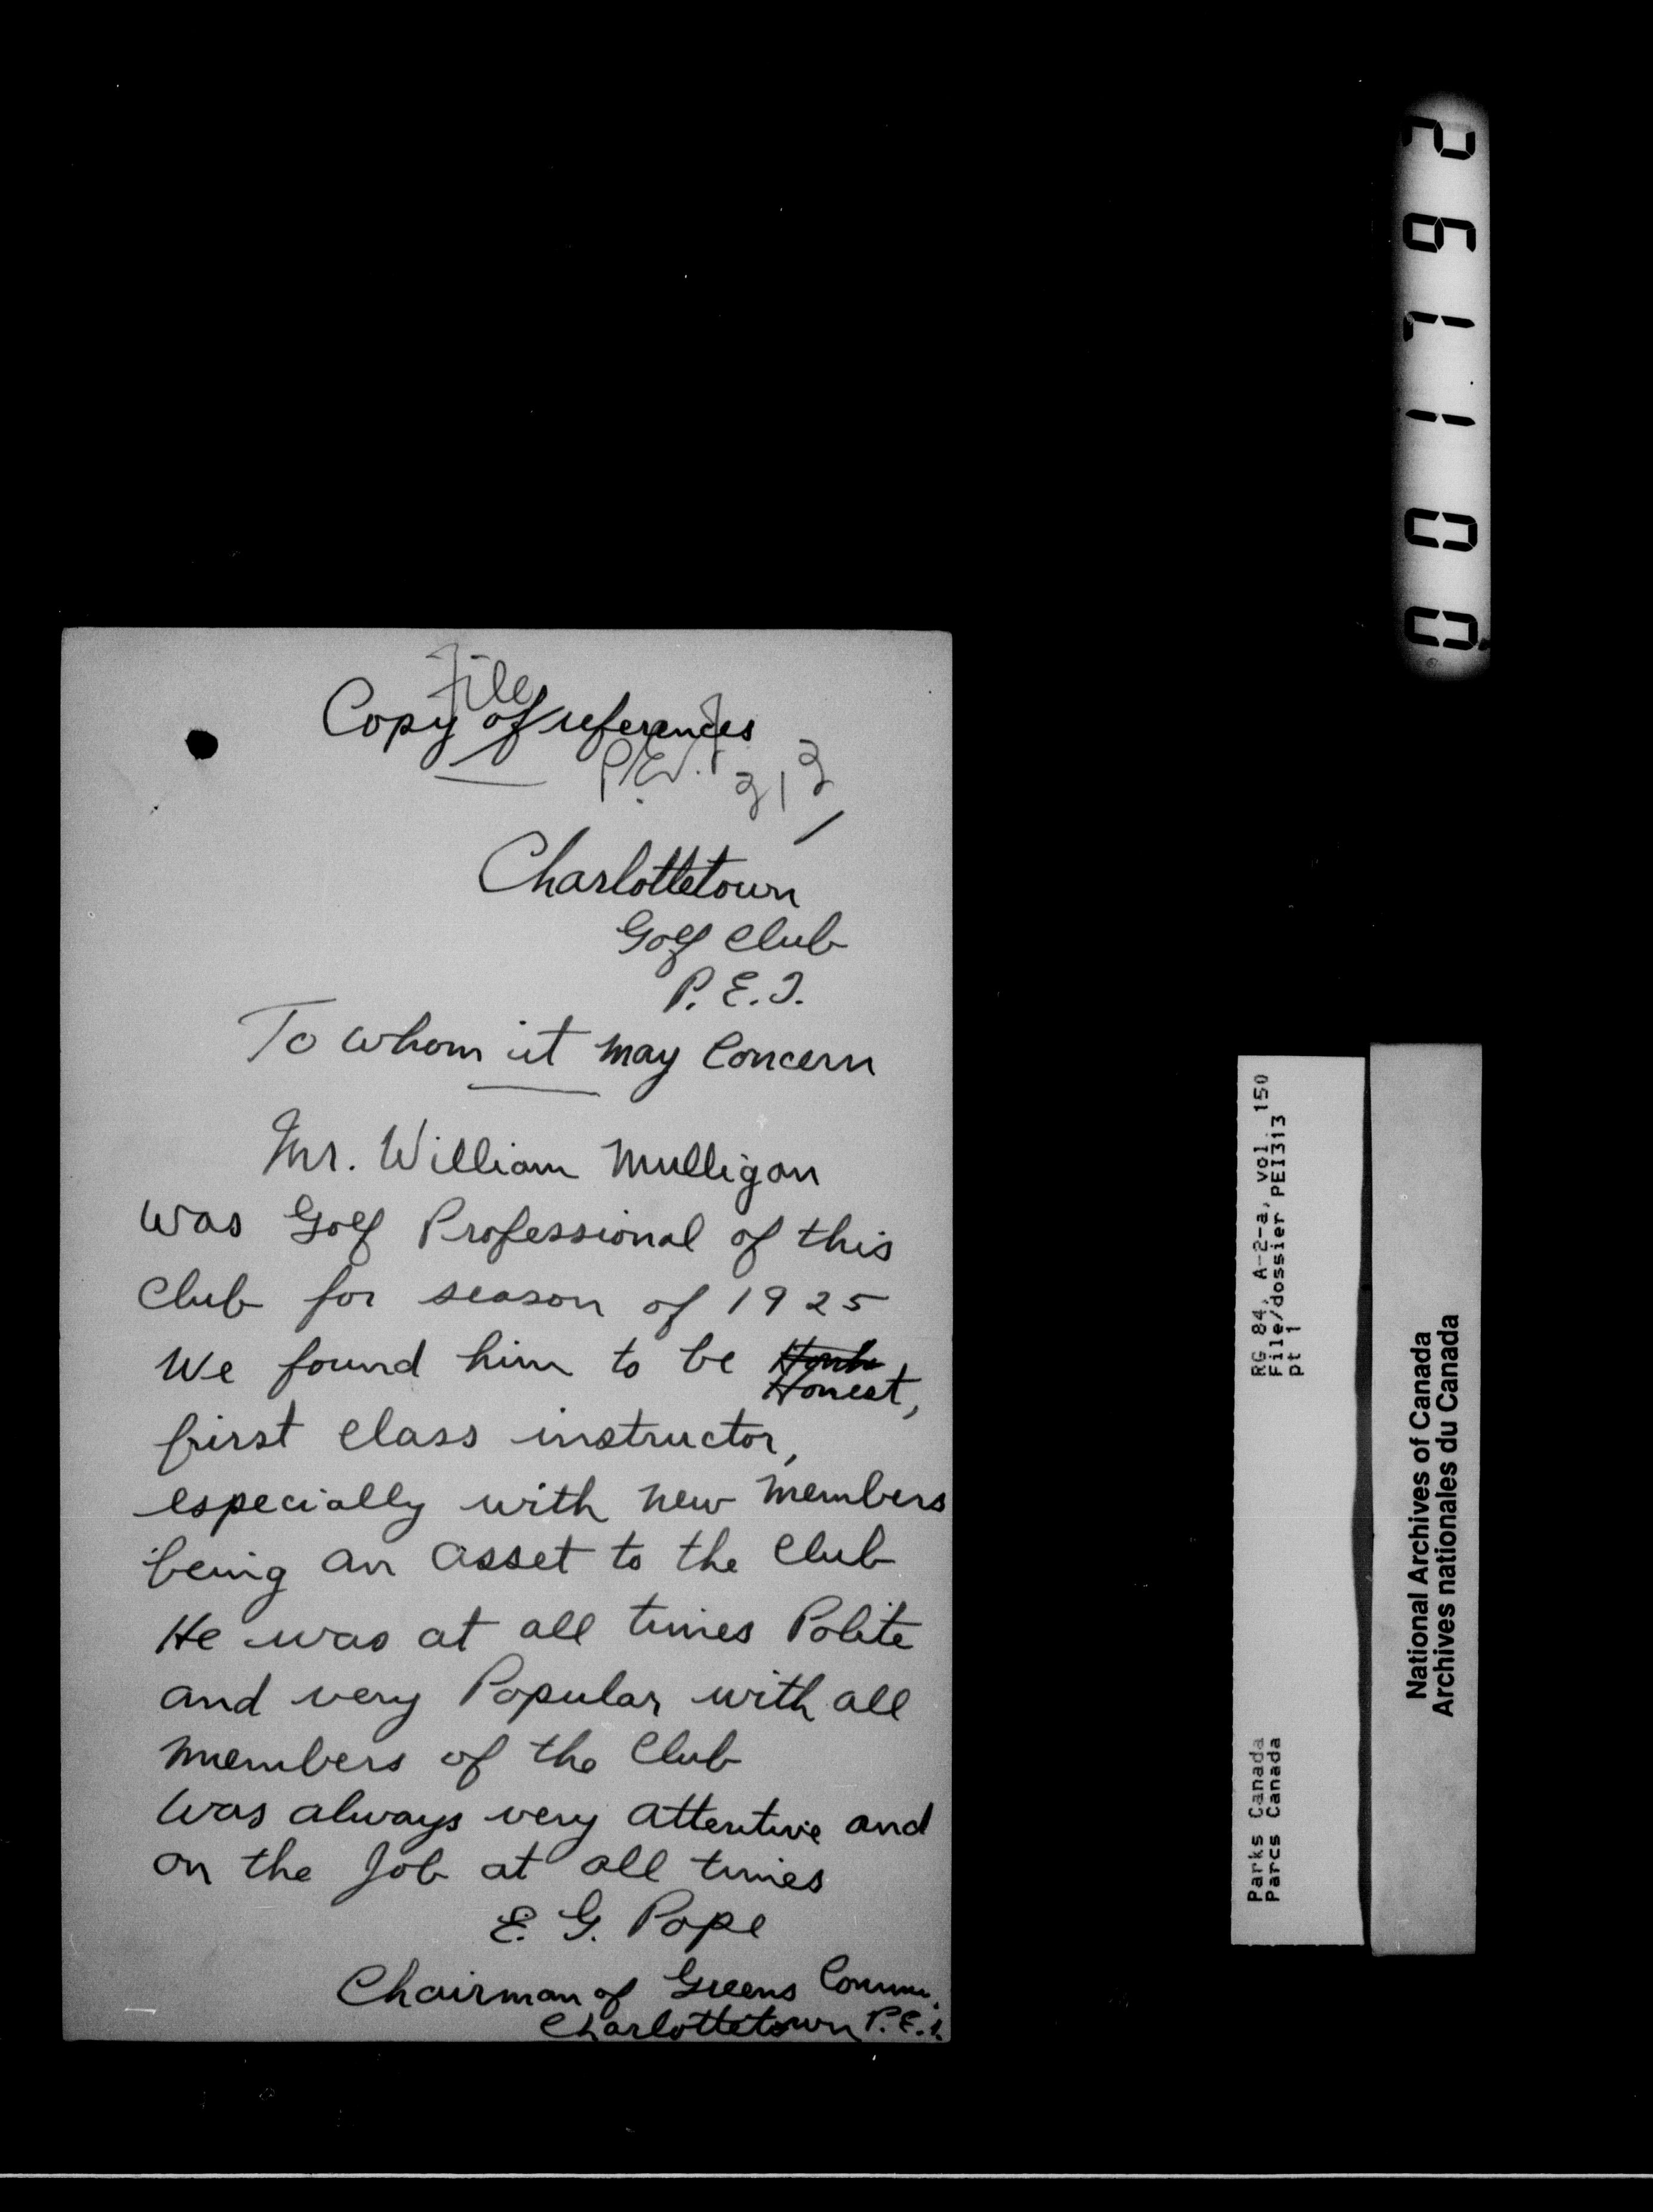 File
Copy of references
P.E.I.
313
Charlottetown
Golf Club
P.E.I.
To whom it may Concern
Mr. William Mulligan
was Golf Professional of this
Club for season of 1925
We found him to be
Honest,
first class instructor,
especially with new members
being an asset to the Club
He was at all times Polite
and very Popular with all
members of the Club
Was always very attentive and
on the Job at all times
E. G. Pope
Chairman of Greens Comm.
Charlottetown P.E.I.
001792
RG 84, A-2-a, vol. 150
File/dossier PEI313
pt 1
Parks Canada
Parcs Canada
National Archives of Canada
Archives nationales du Canada